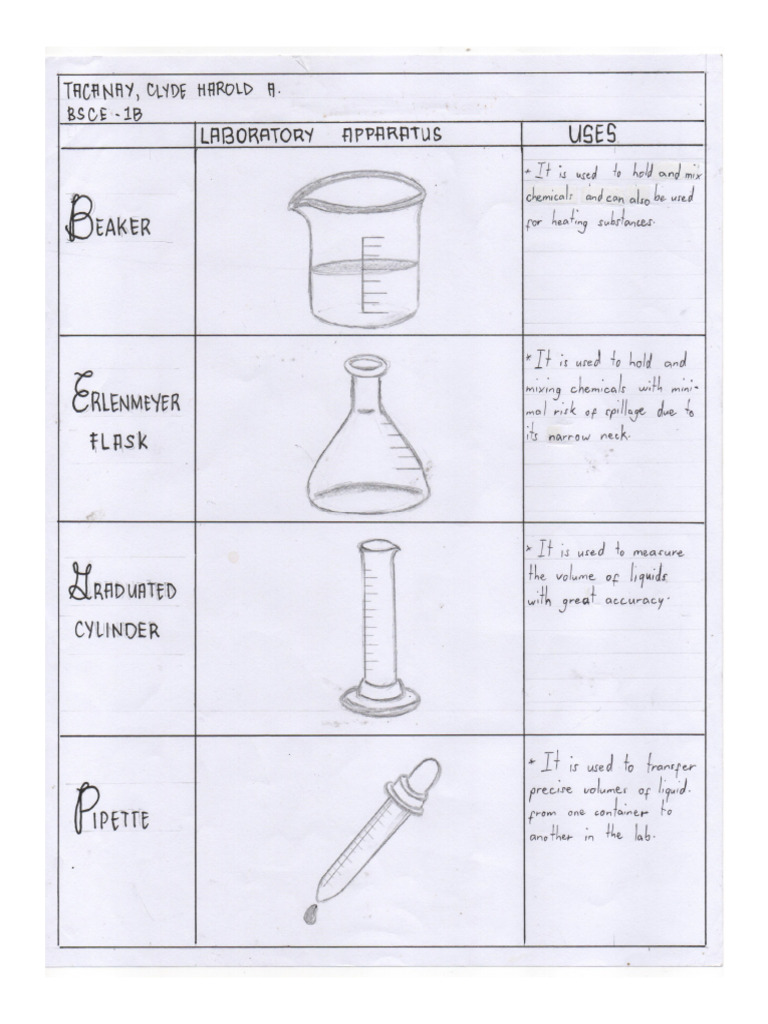 TACANAY, CLYDE HAROLD A.
BSCE - 1B
LABORATORY APPARATUS
USES
BEAKER
* It is used to hold and mix
chemicals and can also be used
for heating substances.
ERLENMEYER
FLASK
* It is used to hold and
mixing chemicals with mini-
mal risk of spillage due to
its narrow neck.
GRADUATED
CYLINDER
* It is used to measure
the volume of liquids
with great accuracy.
PIPETTE
* It is used to transfer
precise volumes of liquid.
from one container to
another in the lab.